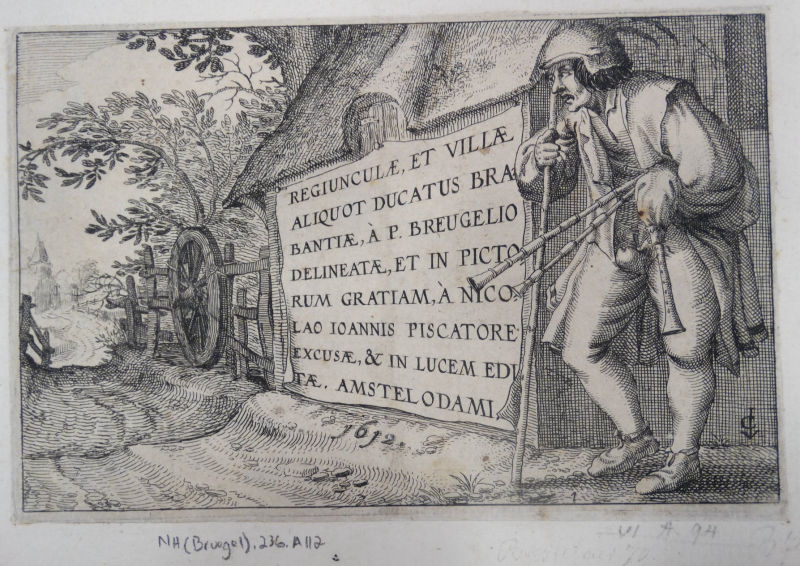 REGIUNCULÆ, ET VILLÆ
ALIQUOT DUCATUS BRA-
BANTIÆ, À P. BREUGELIO
DELINEATÆ, ET IN PICTO
RUM GRATIAM, À NICO-
LAO IOANNIS PISCATORE
EXCUSÆ, & IN LUCEM EDI
TÆ. AMSTELODAMI,
1612.
1
NH (Bruegel). 236. A112
A. 94